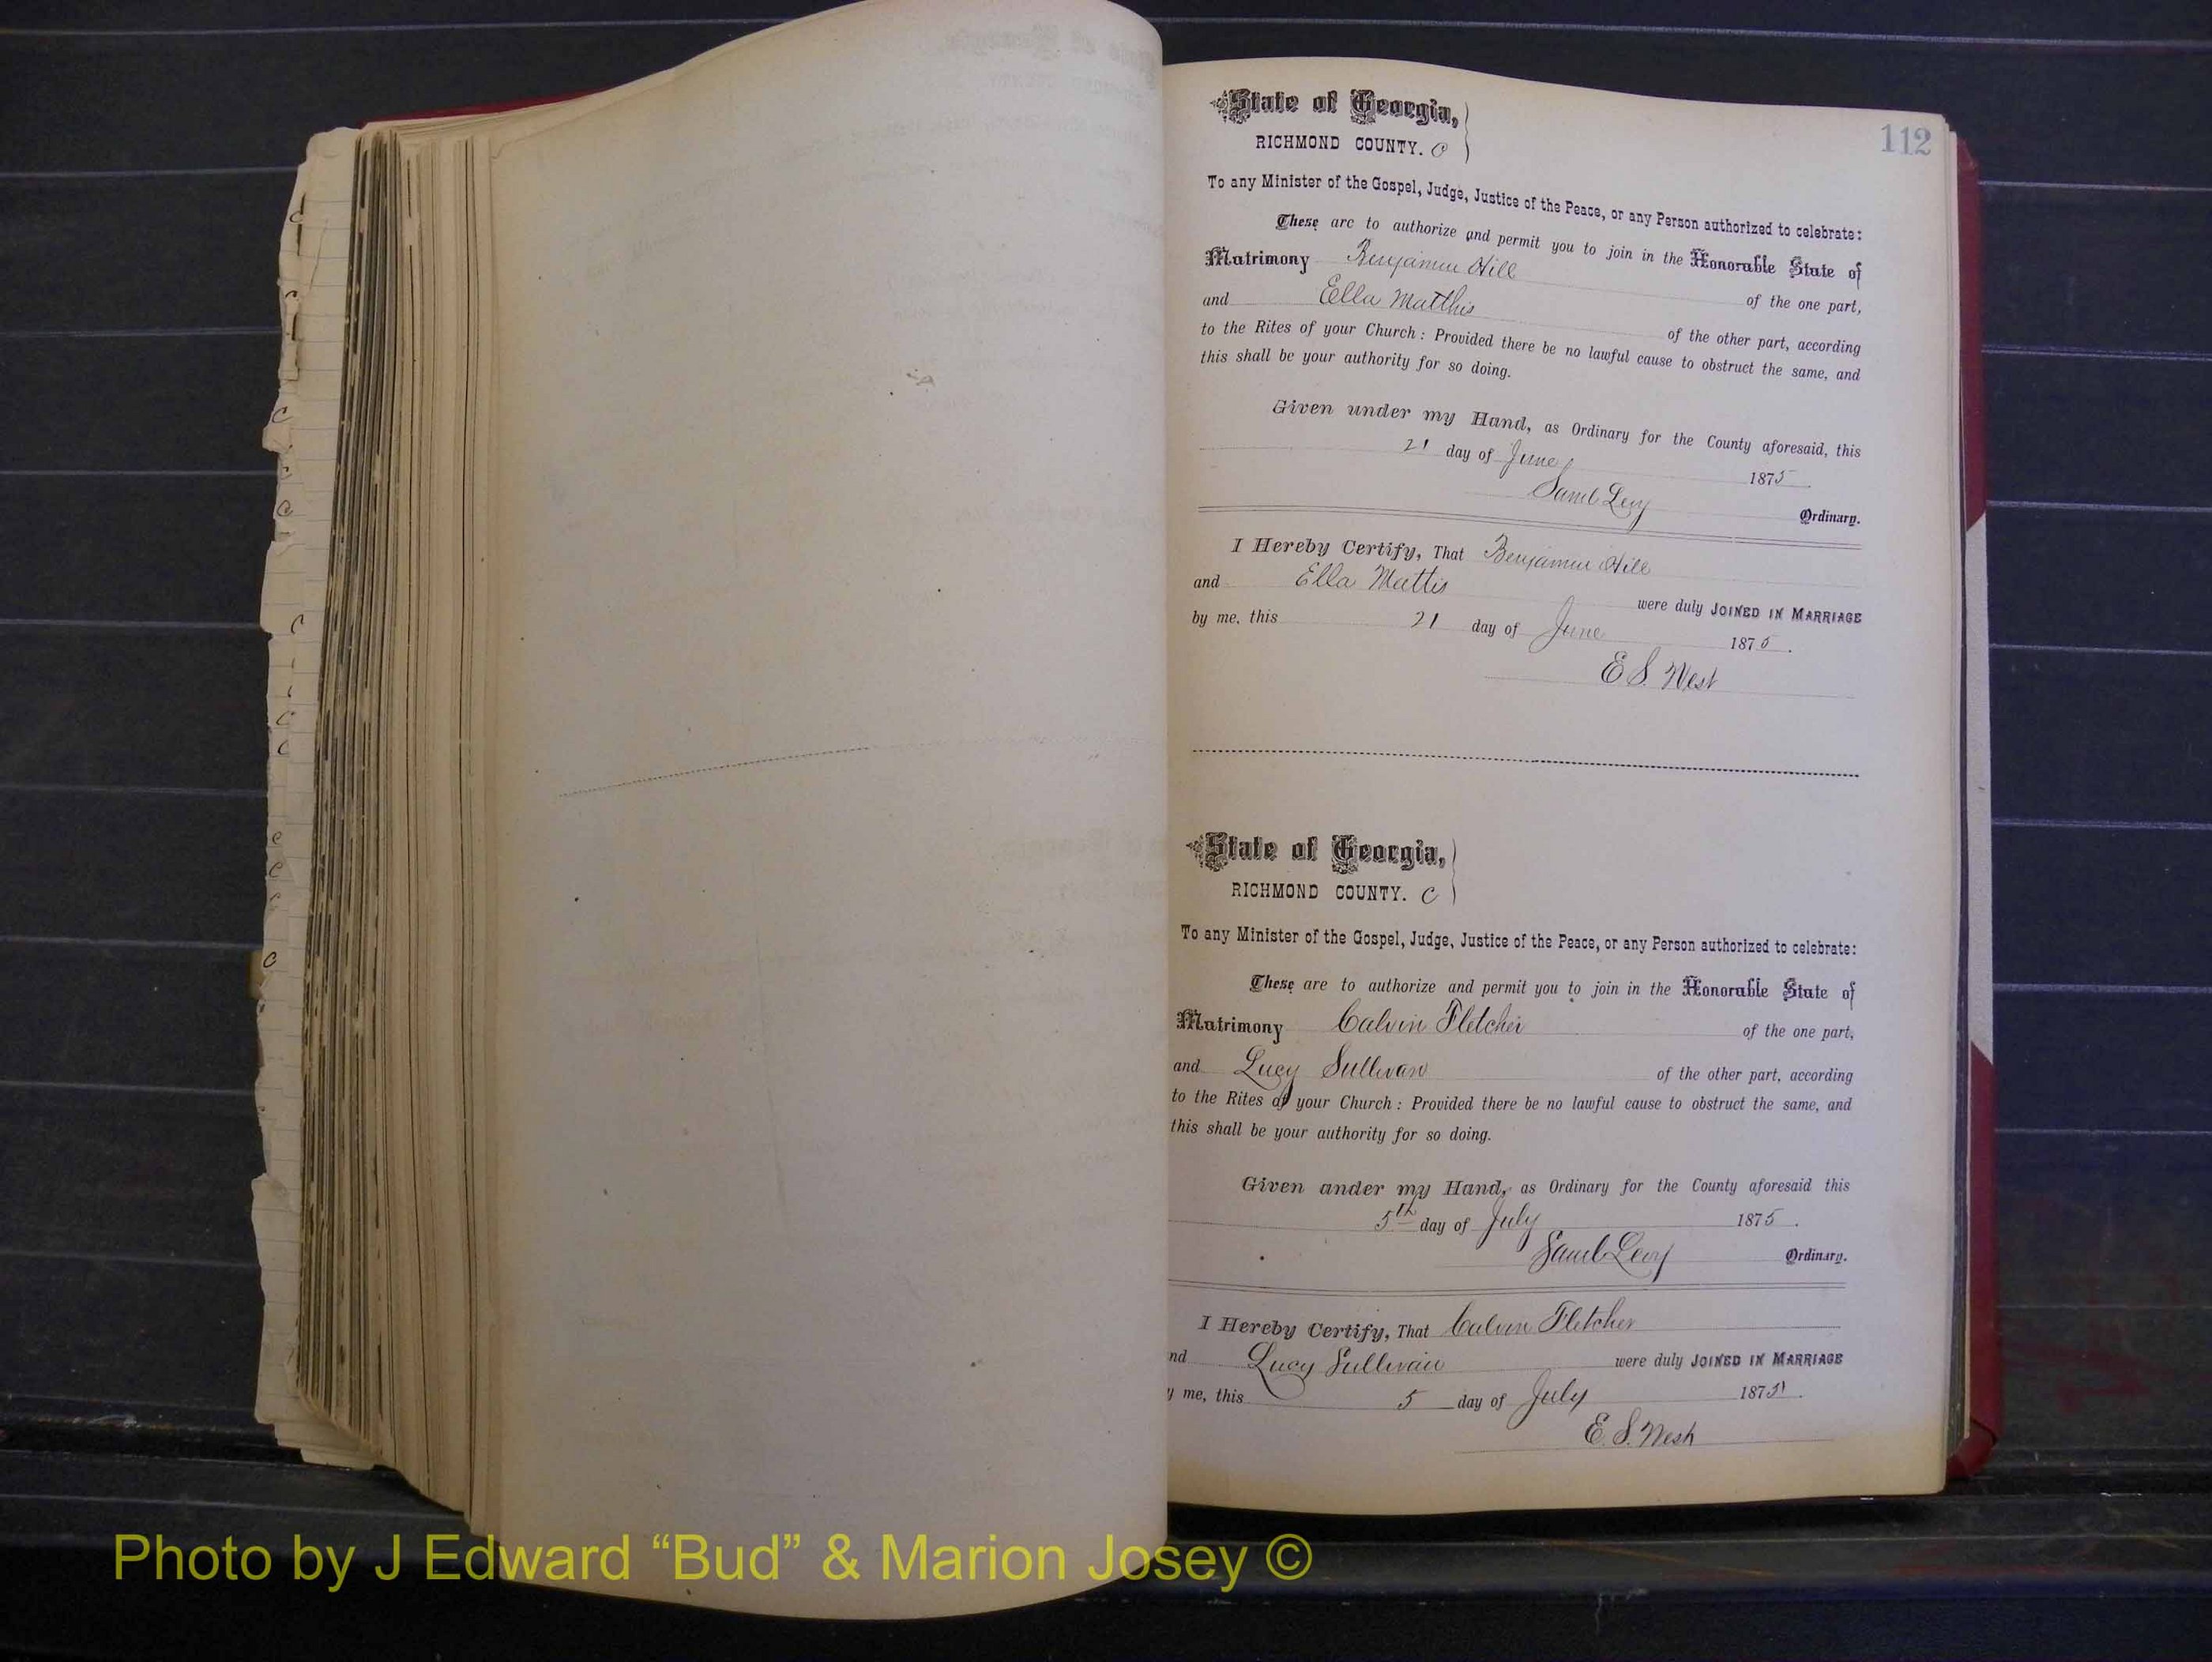 112
State of Georgia,
RICHMOND COUNTY. C
To any Minister of the Gospel, Judge, Justice of the Peace, or any Person authorized to celebrate:
These are to authorize and permit you to join in the Honorable State of
Matrimony Benjamin Hill of the one part,
and Ella Matthis of the other part, according
to the Rites of your Church: Provided there be no lawful cause to obstruct the same, and
this shall be your authority for so doing.
Given under my Hand, as Ordinary for the County aforesaid, this
21 day of June 1875
Saml Levy Ordinary.
I Hereby Certify, That Benjamin Hill
and Ella Mattis were duly JOINED IN MARRIAGE
by me, this 21 day of June 1875.
E. S. West
State of Georgia,
RICHMOND COUNTY. C
To any Minister of the Gospel, Judge, Justice of the Peace, or any Person authorized to celebrate:
These are to authorize and permit you to join in the Honorable State of
Matrimony Calvin Fletcher of the one part,
and Lucy Sullivan of the other part, according
to the Rites of your Church: Provided there be no lawful cause to obstruct the same, and
this shall be your authority for so doing.
Given under my Hand, as Ordinary for the County aforesaid this
5th day of July 1875.
Saml Levy Ordinary.
I Hereby Certify, That Calvin Fletcher
nd Lucy Sullivan were duly JOINED IN MARRIAGE
y me, this 5 day of July 1875.
E. S. West
Photo by J Edward “Bud” & Marion Josey ©